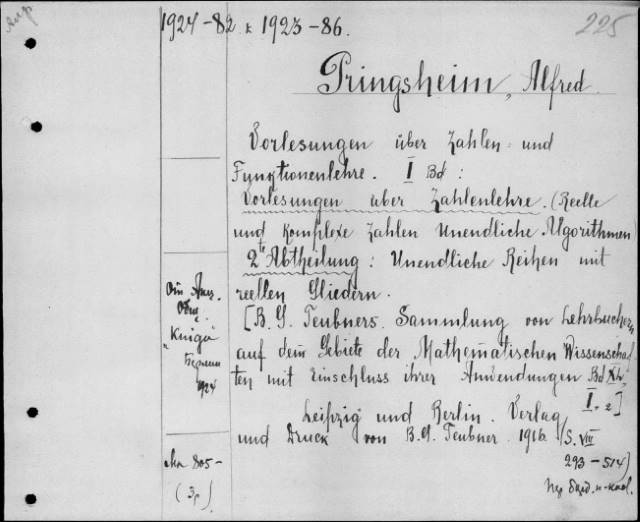 1924-82 & 1923-86.
225
Pringsheim, Alfred.
Vorlesungen über Zahlen- und
Funktionenlehre. I Bd:
Vorlesungen über Zahlenlehre. (Reelle
und Komplexe Zahlen Unendliche Algorithmen)
2te Abtheilung: Unendliche Reihen mit
reellen Gliedern.
[B. G. Teubners Sammlung von Lehrbücher,
auf dem Gebiete der Mathematischen Wissenschaf
ten mit Einschluss ihrer Anwendungen Bd XL,
I, 2]
Leipzig und Berlin. Verlag
und Druck von B. G. Teubner. 1916. (S. VIII
293-514)
"Kniga"
1924
805-